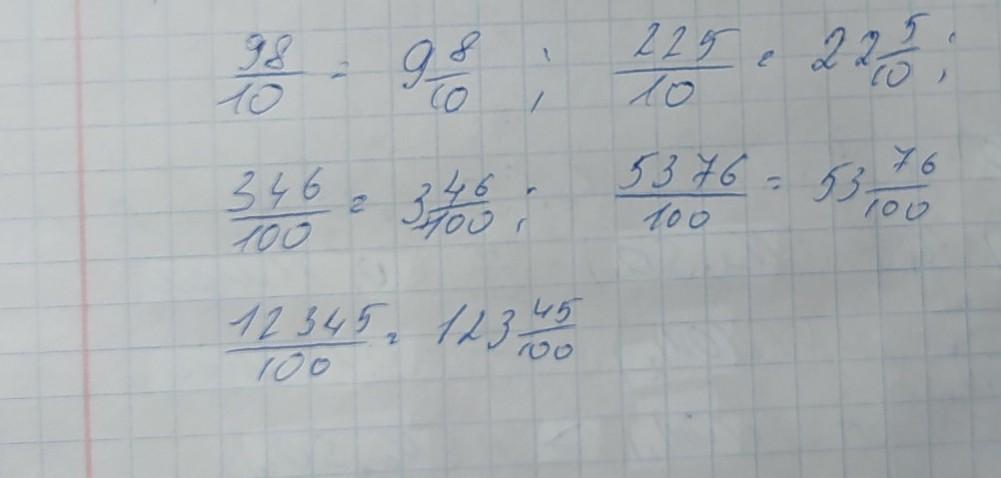 98/10 = 9 8/10 ; 225/10 = 22 5/10 ;
346/100 = 3 46/100 ; 5376/100 = 53 76/100
12345/100 = 123 45/100